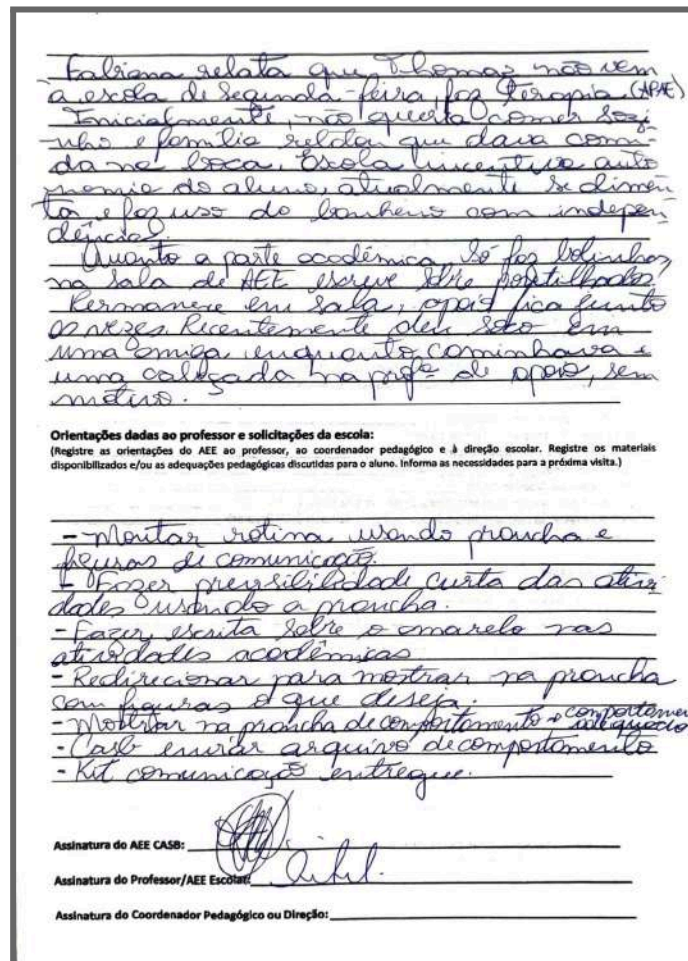 Fabiana relata que Thomaz não vem
a escola de segunda-feira, faz terapia (APAE)
Inicialmente, não queria comer sozi
nho e família relatou que dava comi-
da na boca. Escola incentiva auto
nomia do aluno, atualmente se alimen
ta e faz uso do banheiro com indepen
dência.
Quanto a parte acadêmica, só faz bolinhas,
na sala de AEE escreve sobre pontilhados.
Permanece em sala, apoio fica junto
as vezes. Recentemente deu soco em
uma amiga enquanto caminhava e
uma cabeçada na profª de apoio, sem
motivo.
Orientações dadas ao professor e solicitações da escola:
(Registre as orientações do AEE ao professor, ao coordenador pedagógico e à direção escolar. Registre os materiais
disponibilizados e/ou as adequações pedagógicas discutidas para o aluno. Informa as necessidades para a próxima visita.)
- Montar rotina usando prancha e
figuras de comunicação.
- Fazer previsibilidade curta das ativi
dades usando a prancha.
- Fazer escrita sobre o amarelo nas
atividades acadêmicas
- Redirecionar para mostrar na prancha
com figuras o que deseja.
- Mostrar na prancha de comportamento o comportamen
adequado
- Casb enviar arquivo de comportamento
- Kit comunicação entregue.
Assinatura do AEE CASB:
Assinatura do Professor/AEE Escolar:
Assinatura do Coordenador Pedagógico ou Direção: